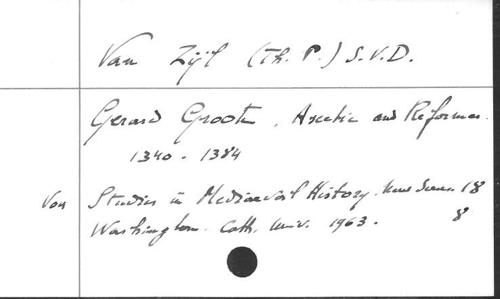 Van Zijl (Th. P.) S.V.D.
Gerard Groote, Ascetic and Reformer.
1340-1384
Von Studies in Mediaeval History. New Series. 18
Washington. Cath. Univ. 1963. 8